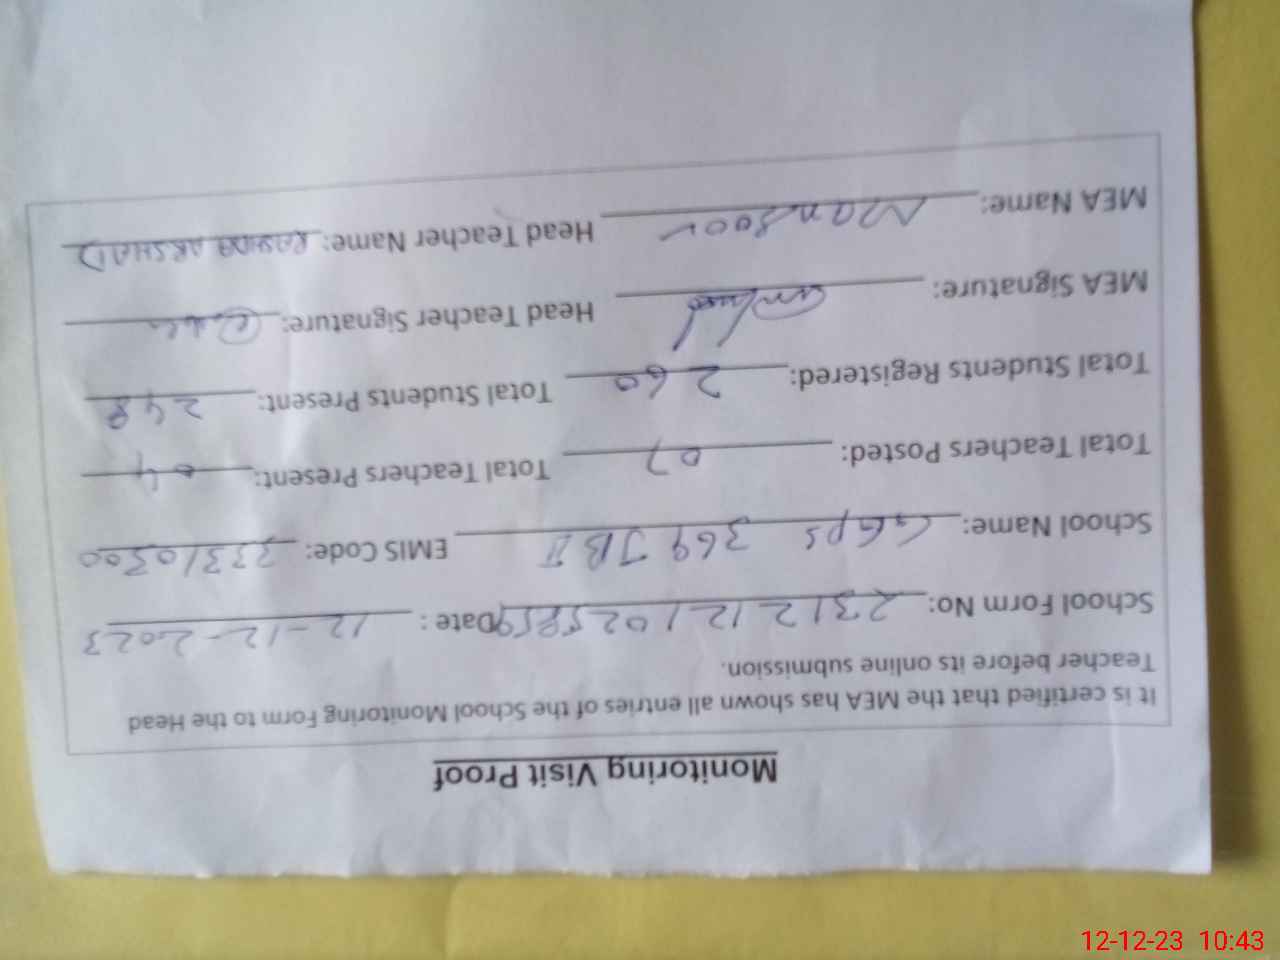 Monitoring Visit Proof
It is certified that the MEA has shown all entries of the School Monitoring Form to the Head
Teacher before its online submission.
School Form No: 231212121025859 Date : 12-12-2023
School Name: GGPS 369 JB II EMIS Code: 33310300
Total Teachers Posted: 07 Total Teachers Present: 04
Total Students Registered: 260 Total Students Present: 248
MEA Signature: Head Teacher Signature:
MEA Name: Mansoor Head Teacher Name: RASHIDA ARSHAD
12-12-23 10:43